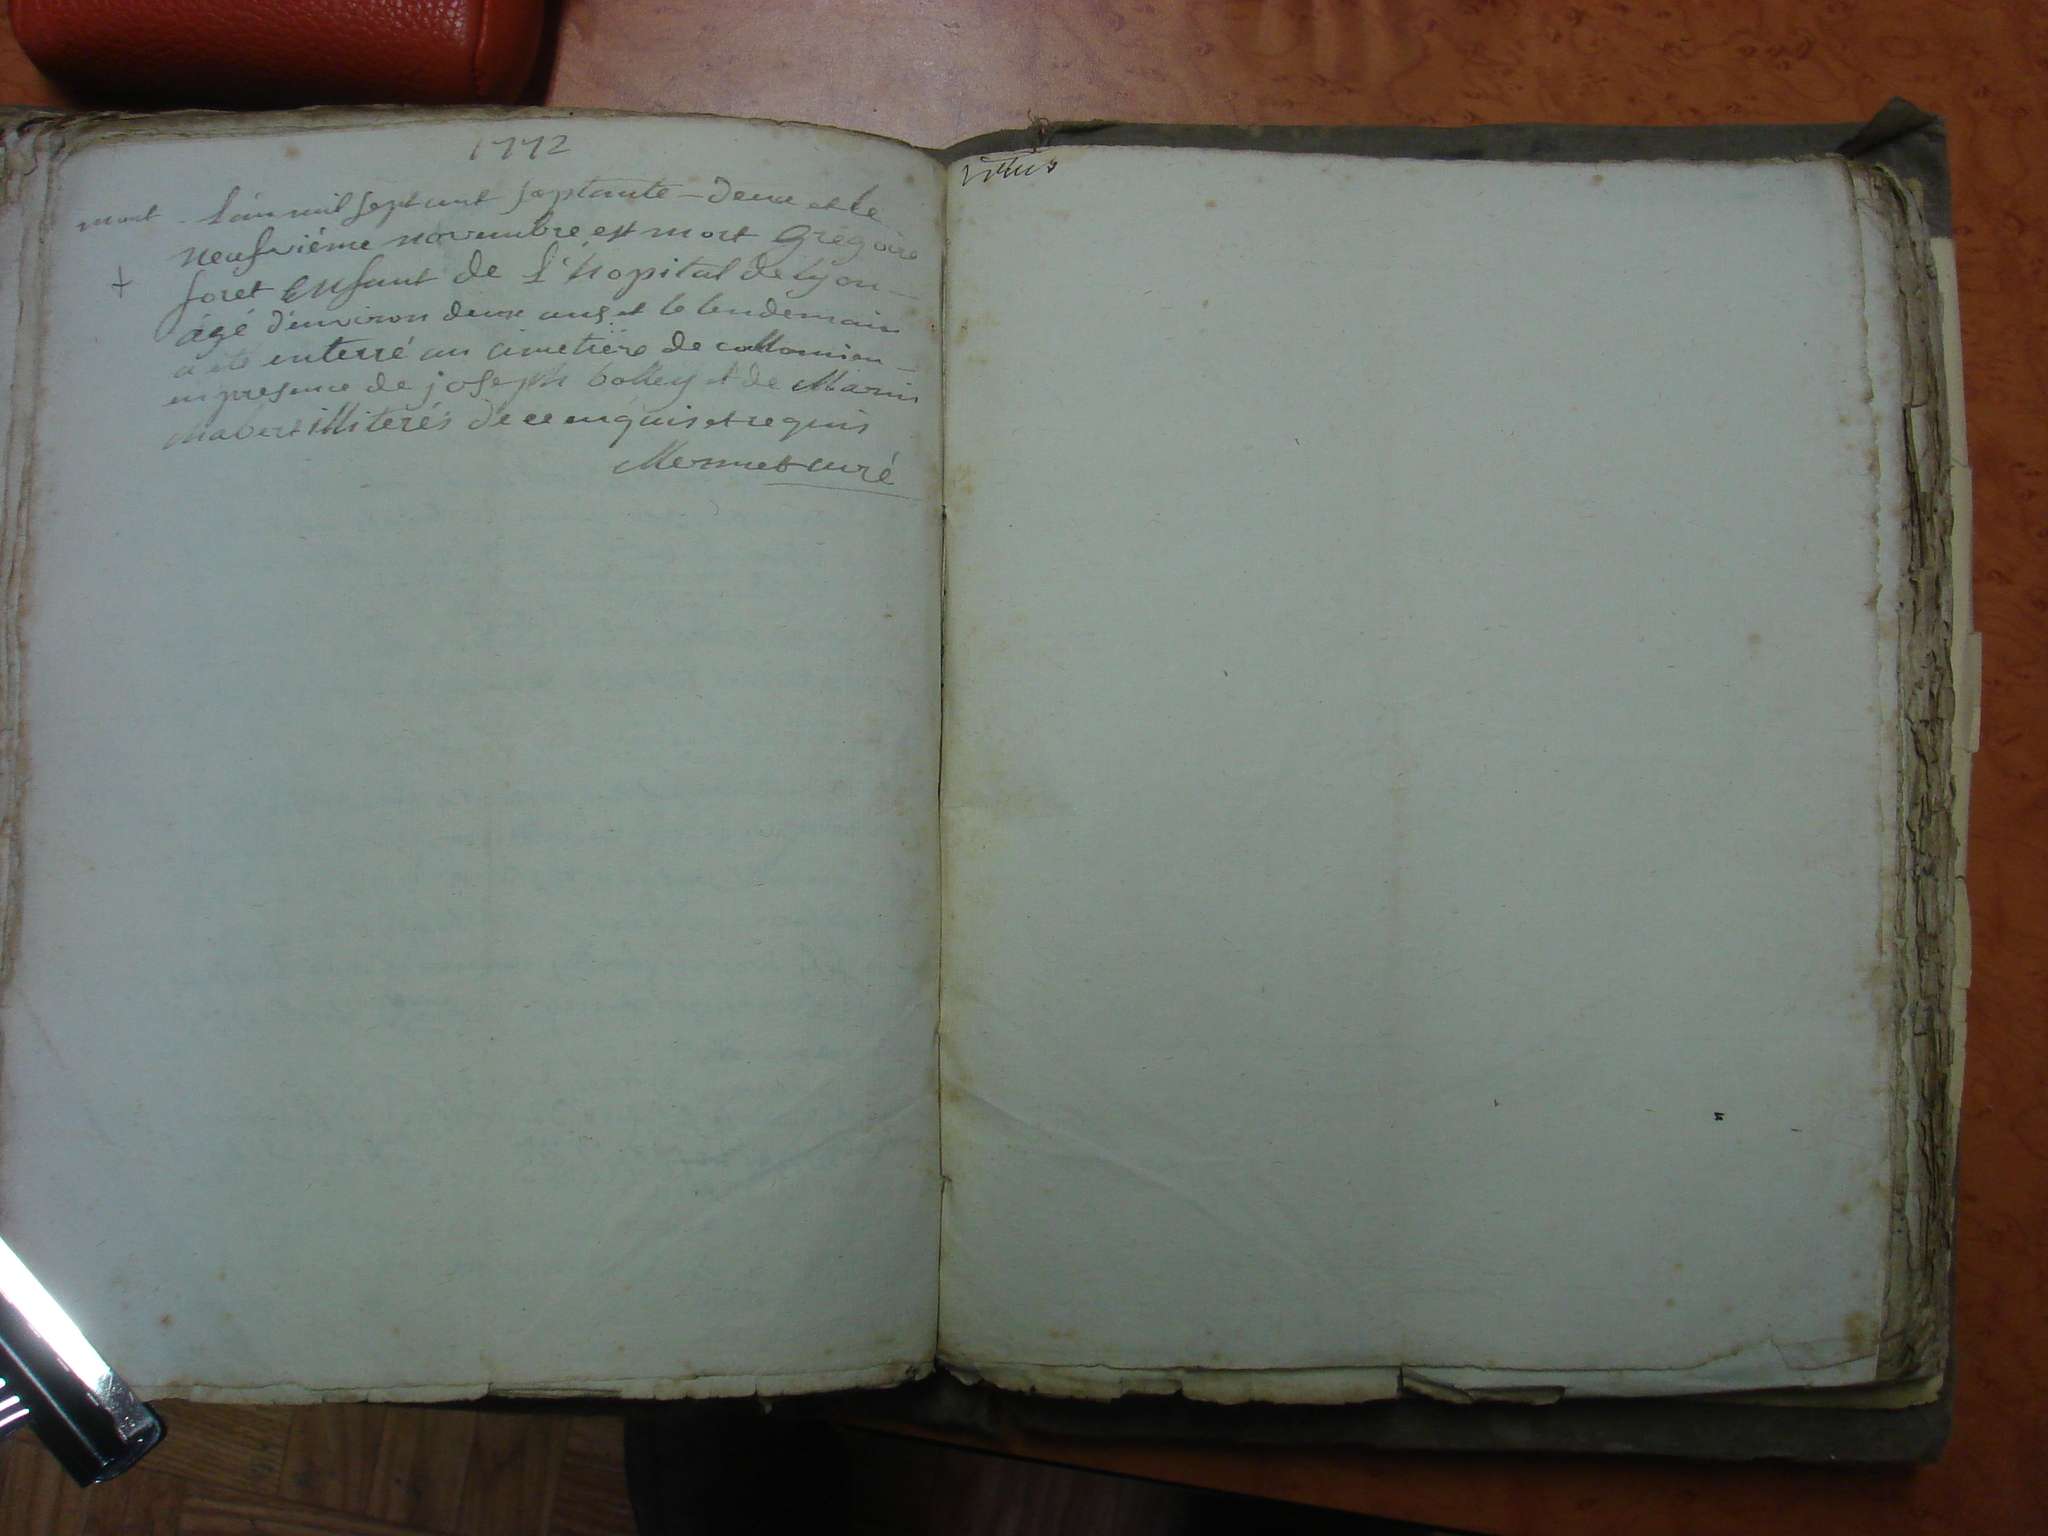 1772
mort l'an mil sept cent septante-deux et le
neufvième novembre est mort Grégoire
+ foret Enfant de l'hopital de Lyon
âgé d'environ deux ans et le lendemain
a eté enterré au cimetière de collomieu
en presence de joseph bolley et de Marin
Mabert illiterés de ce enquis et requis
Mermet curé